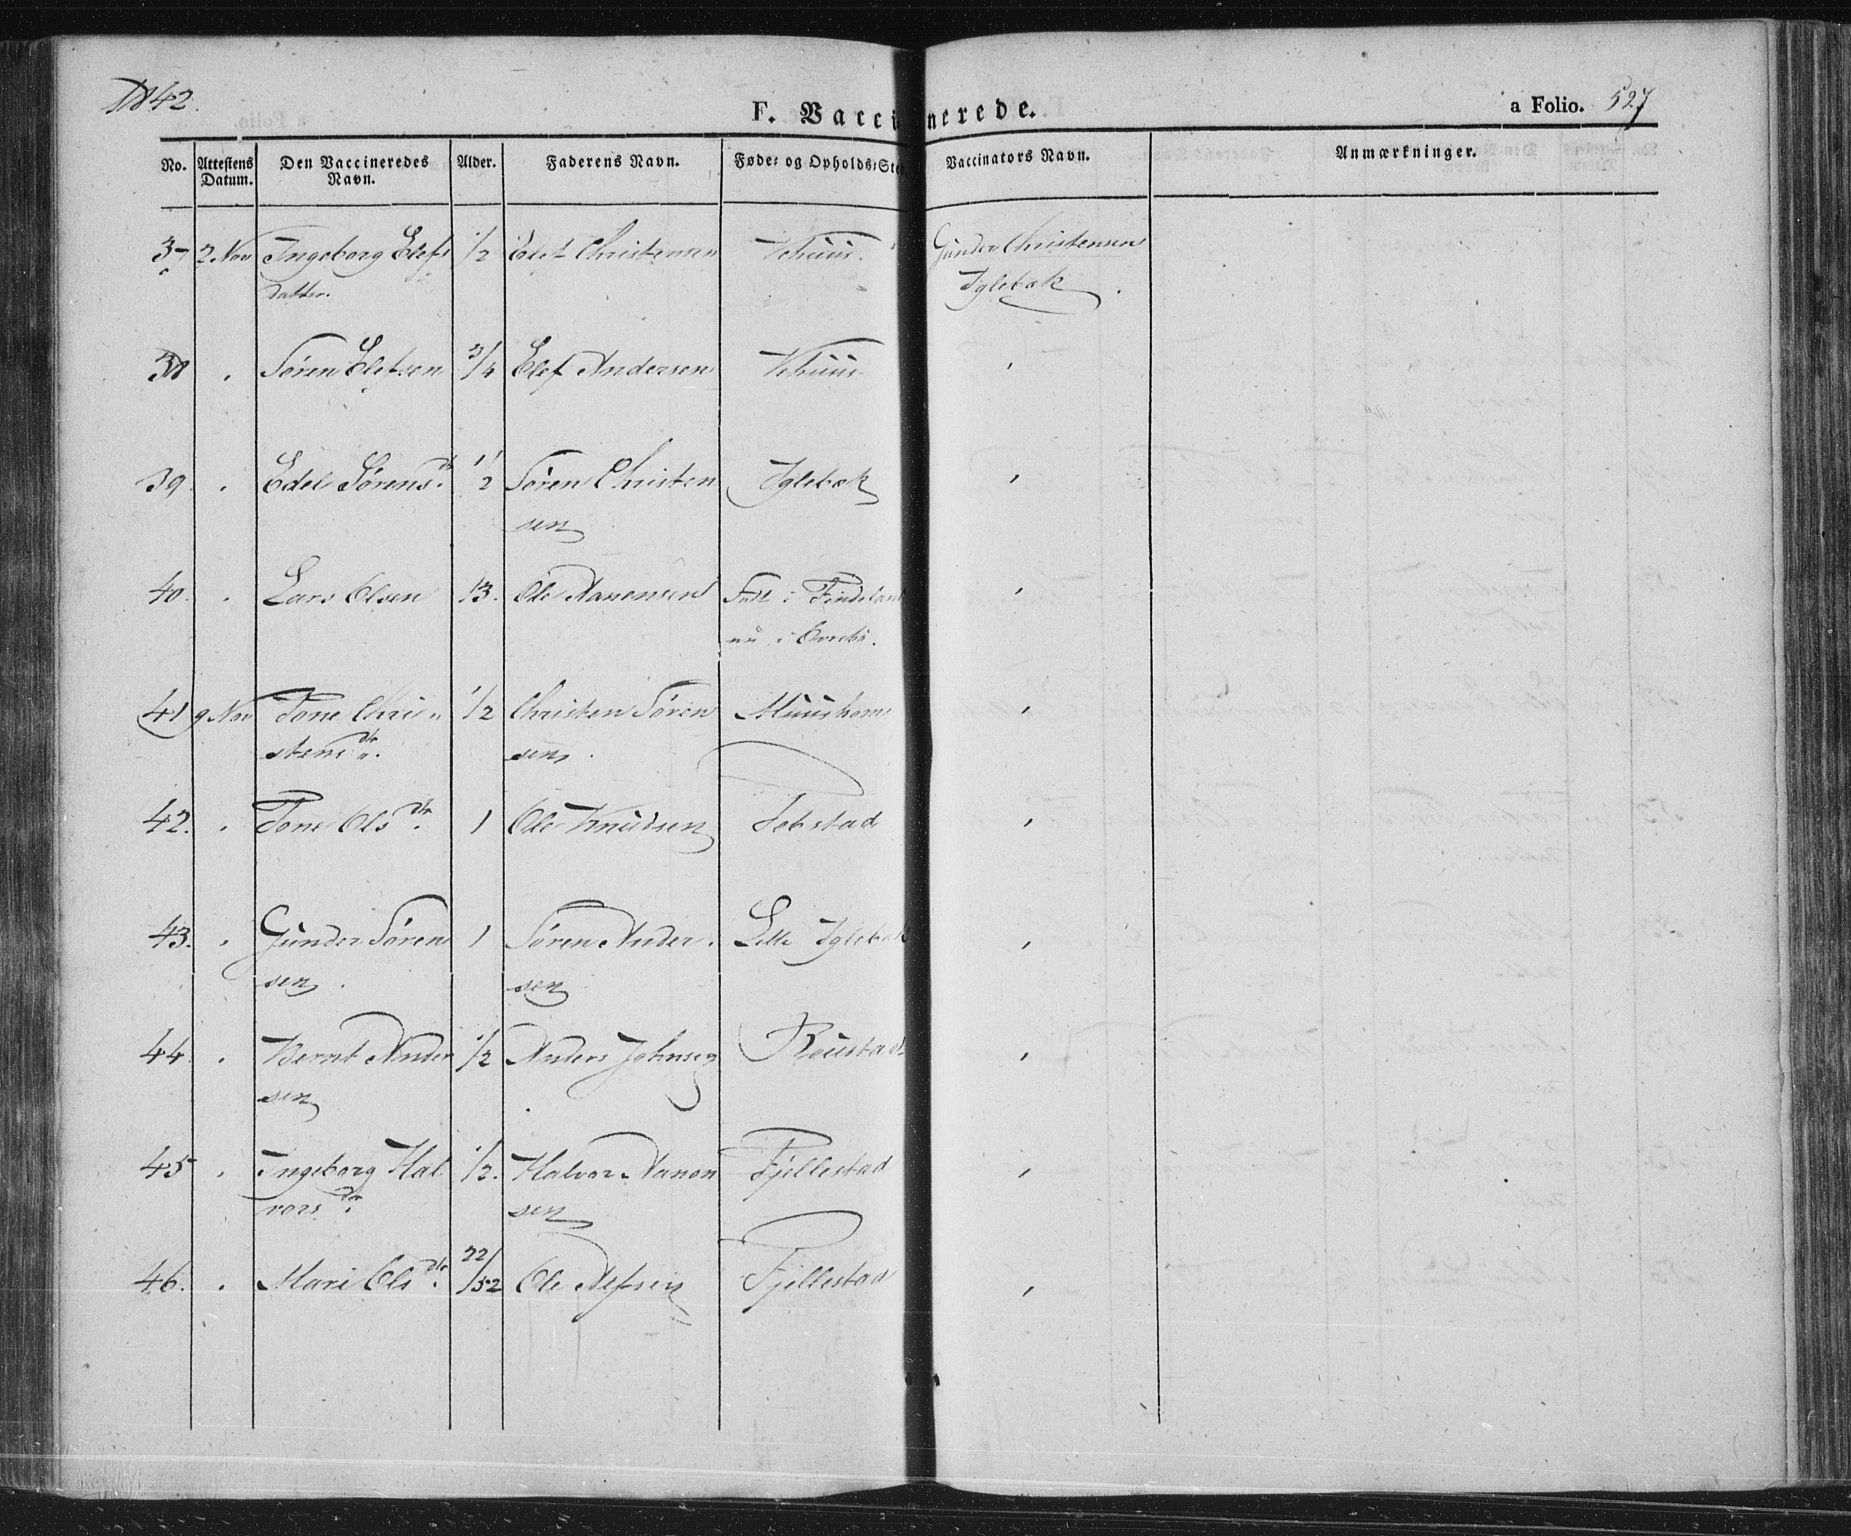 1842.
F. Vaccinerede.
a Folio. 527
No. Attestens Datum. Den Vaccineredes Navn. Alder. Faderens Navn. Føde- og Opholds-Sted Vaccinators Navn. Anmærkninger.
37 2 Nov Ingeborg Elefs 1/2 Elef Christensen Vehuus. Gunder Christensen
datter. Iglebæk
38 . Søren Elefsen 3/4 Elef Andersen Vehuus
39 . Edel Sørensdtr. 1/2 Søren Christen Iglebæk
sen
40. . Lars Olsen 13. Ole Aanensen Født i Findeland
nu i
41 9 Nov Tone Chri 1/2 Christen Søren Muushom
stensdtr. sen.
42. . Tone Olsdtr. 1 Ole Knudsen
43. . Gunder Søren 1 Søren Ander Lille Iglebæk
sen. sen
44. . Bernt Ander 1/2 Anders Johnsen Roustad
sen
45 . Ingeborg Hal 1/2. Halvor Aanon Fjellestad
vorsdtr. sen
46. . Mari Olsdtr. 22/52 Ole Alfsen Fjellestad